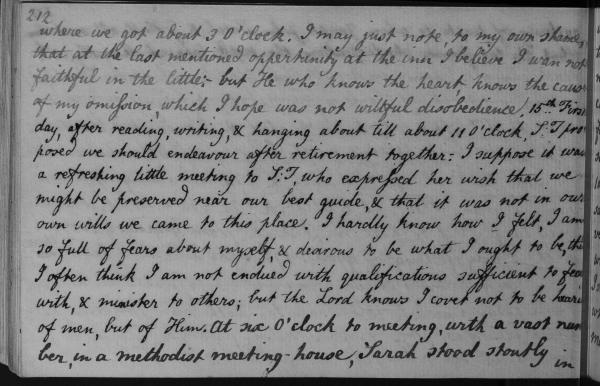 212
where we got about 3 O'clock. I may just note, to my own shame,
that at the last mentioned oppertunity at the inn I believe I was not
faithful in the little;- but He who knows the heart, knows the cause
of my omission, which I hope was not willful disobedience. 15th First
day, after reading, writing, & hanging about till about 11 O'clock, S:T pro-
posed we should endeavour after retirement together: I suppose it was
a refreshing little meeting to S:T, who expressed her wish that we
might be preserved near our best guide, & that it was not in our
own wills we came to this place. I hardly know how I felt, I am
so full of fears about myself, & desirous to be what I ought to be, tho
I often think I am not endued with qualifications sufficient to feel
with, & minister to others; but the Lord knows I covet not to be heard
of men, but of Him. At six O'clock to meeting, with a vast num
ber, in a methodist meeting-house, Sarah stood stoutly in